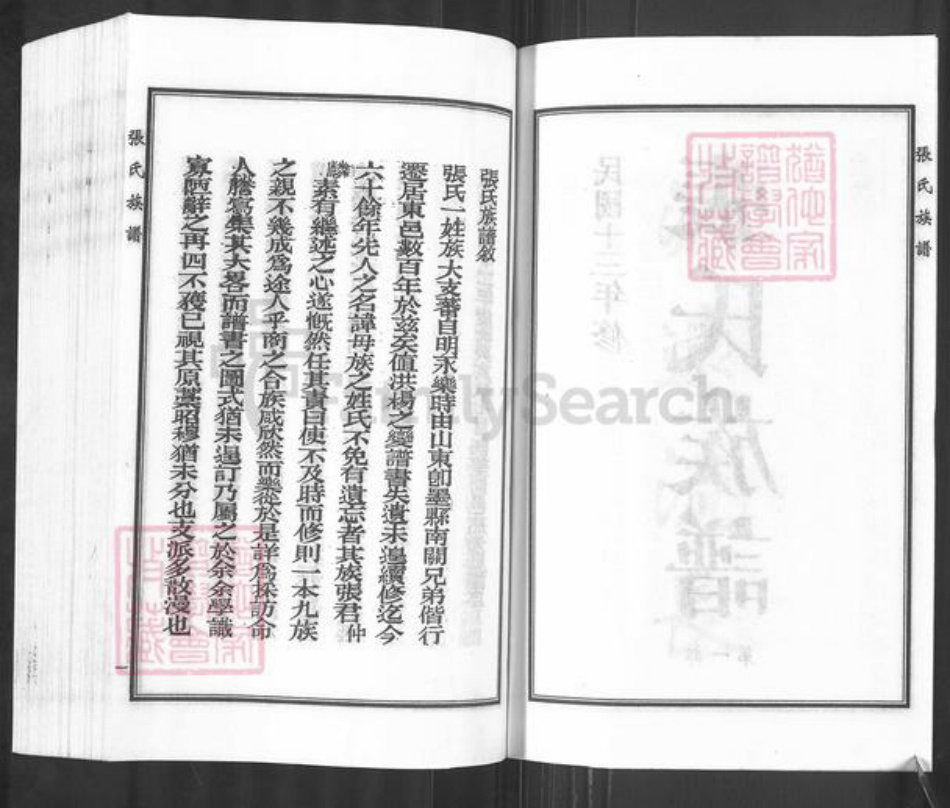 張氏族譜
民國十三年修
氏族譜
張氏族譜敘
張氏一姓族大支蕃自明永樂時由山東卽墨縣南關兄弟偕行
遷居東邑數百年於茲矣値洪楊之變譜書失遺未遑續修迄今
六十餘年先人之名諱母族之姓氏不免有遺忘者其族張君仲
素有繼述之心遂慨然任其責曰使不及時而修則一本九族
之親不幾成爲途人乎商之合族咸欣然而樂從於是詳爲採訪命
人謄寫集其大畧而譜書之圖式猶未遑訂乃屬之於余余學識
寡陋辭之再四不獲已視其原藁昭穆猶未分也支派多散漫也
張氏族譜
一
FamilySearch